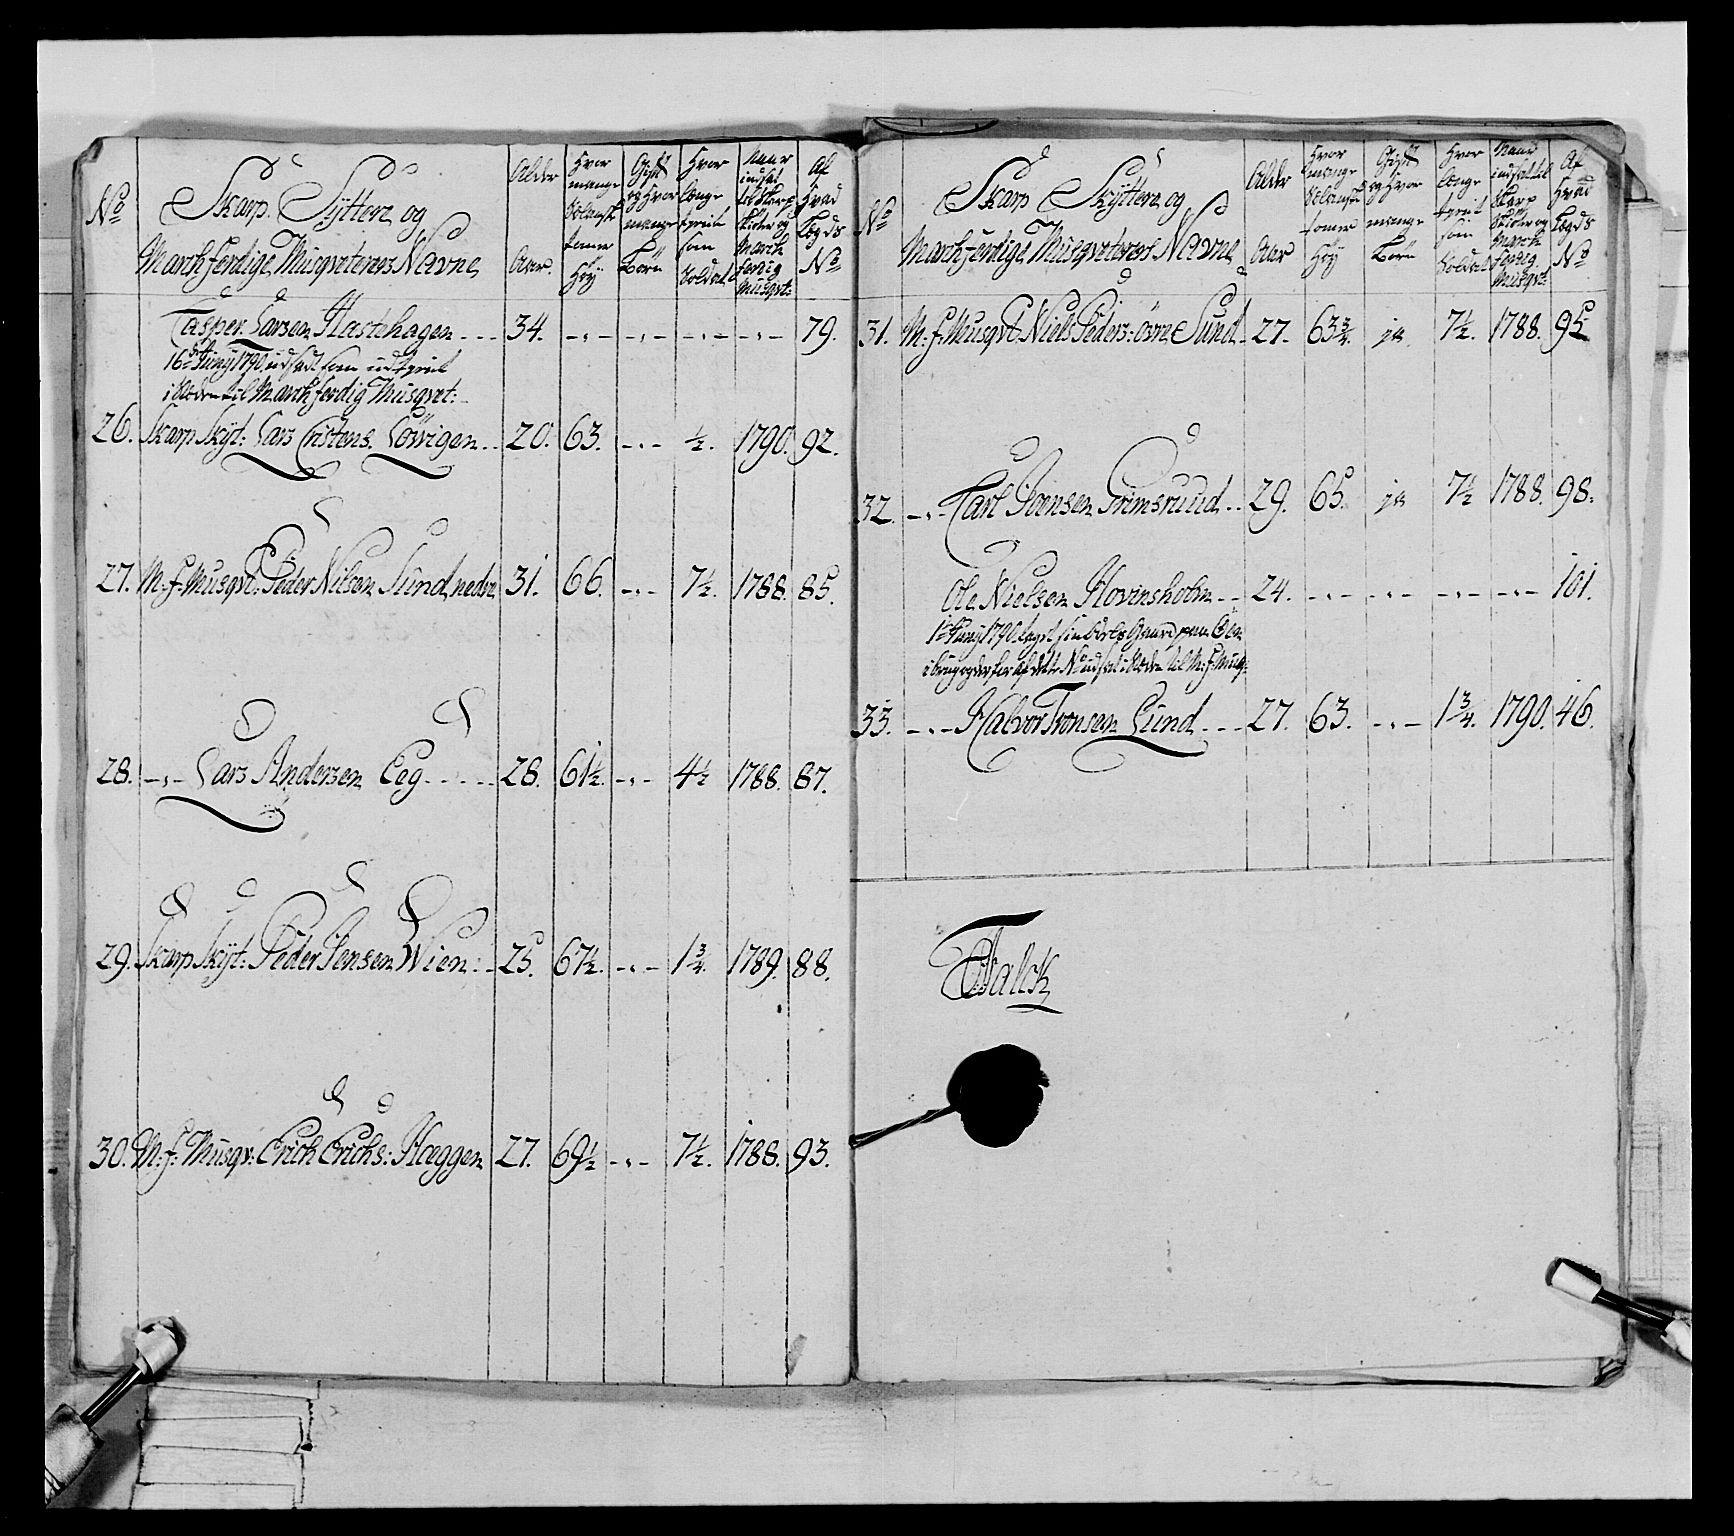 No
Skarp. Sÿttere og
Marchferdige Musqveteres Navne
Alder
Aar.
Hvor
mange
Solansk
tomer
Höÿ
Gift
og Hvor
mange
Börn
Hvor
Længe
tient
som
Soldat
Naar
indsat
til Skarp
skütter og
March
ferdig
Musqvt:
Af
Hvad
Legds
No
Casper Larsen Hastehagen --- 34. -"- -"- -"- -"- 79.
16de Junÿ 1790 udsadt som udtient
i steden til Marchferdig Musqvet:
26. Skarp Skÿt: Lars Cristens. Lövigen -- 20. 63. -"- ½. 1790. 92.
27. M: f: Musqvt: Peder Nilsen Sund nedre 31. 66. -"- 7½. 1788. 85.
28. -"- Lars Andersen Eeg ---- 28. 61½. -"- 4½ 1788. 87.
29. Skarp Skÿt: Peder Jensen Wien: - 25. 67½. -"- 1¾. 1789. 88.
30. M: f: Musqv: Erich Erichs: Hæggen 27. 69½ -"- 7½. 1788. 93.
No
Skarp Skÿttere og
Marchferdige Musqveteres Navne
Alder
Aar
Hvor
mange
Solansk
tomer
Höÿ
Gift
og Hvor
mange
Börn
Hvor
Længe
tient
som
Soldat
Naar
indsat til
Skarp
Skütter og
March
ferdig
Musqvt:
Af
Hvad
Legds
No
31. M: f: Musqvt: Niels Peders: övre Sund - 27. 63¾. ja 7½. 1788. 95
32. -"- Carl Svensen Grimsrund -- 29. 65. ja 7½ 1788. 98.
Ole Nielsen Hovinsholm -- 24. -"- -"- -"- -"- 101.
1te Junÿ 1790 taget sin Gaard
i brug
33. -"- Halvor Tronsen Lund --- 27. 63. -"- 1¾. 1790. 46.
Falck